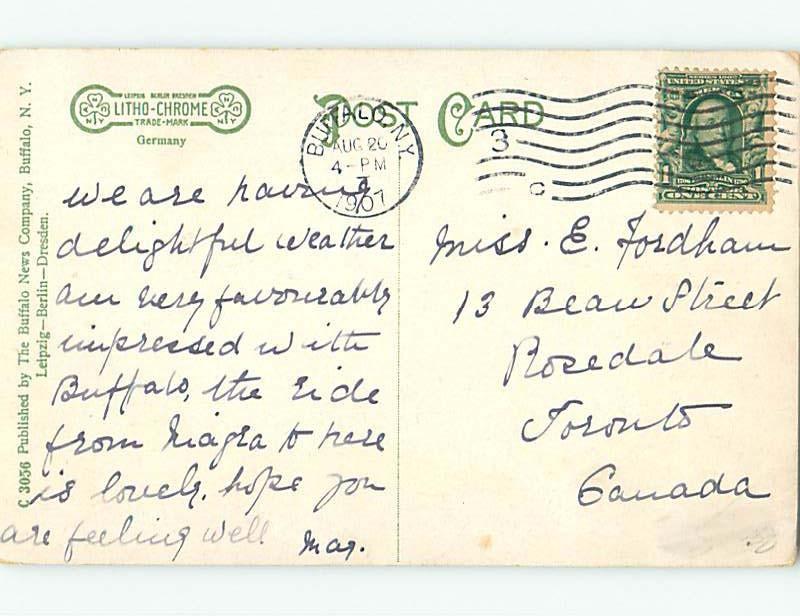 LEIPZIG BERLIN DRESDEN
LITHO-CHROME
TRADE-MARK
Germany
POST CARD
BUFFALO, N.Y.
AUG 20
4-PM
1907
3
C
SERIES 1902
UNITED STATES
ONE CENT
C 3056 Published by The Buffalo News Company, Buffalo, N. Y.
Leipzig—Berlin—Dresden.
we are having
delightful weather
am very favourably
impressed with
Buffalo, the ride
from Niagra to here
is lovely. hope you
are feeling well
May.
Miss. E. Fordham
13 Beau Street
Rosedale
Toronto
Canada